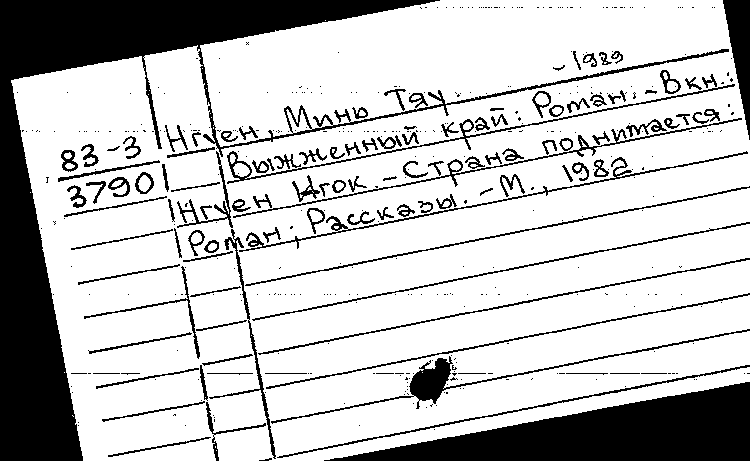 - 1989
83-3 Нгуен, Минь Тяу.
3790 Выжженный край: Роман. - В кн.:
Нгуен Нгок. - Страна поднимается:
Роман; Рассказы. - М., 1982.